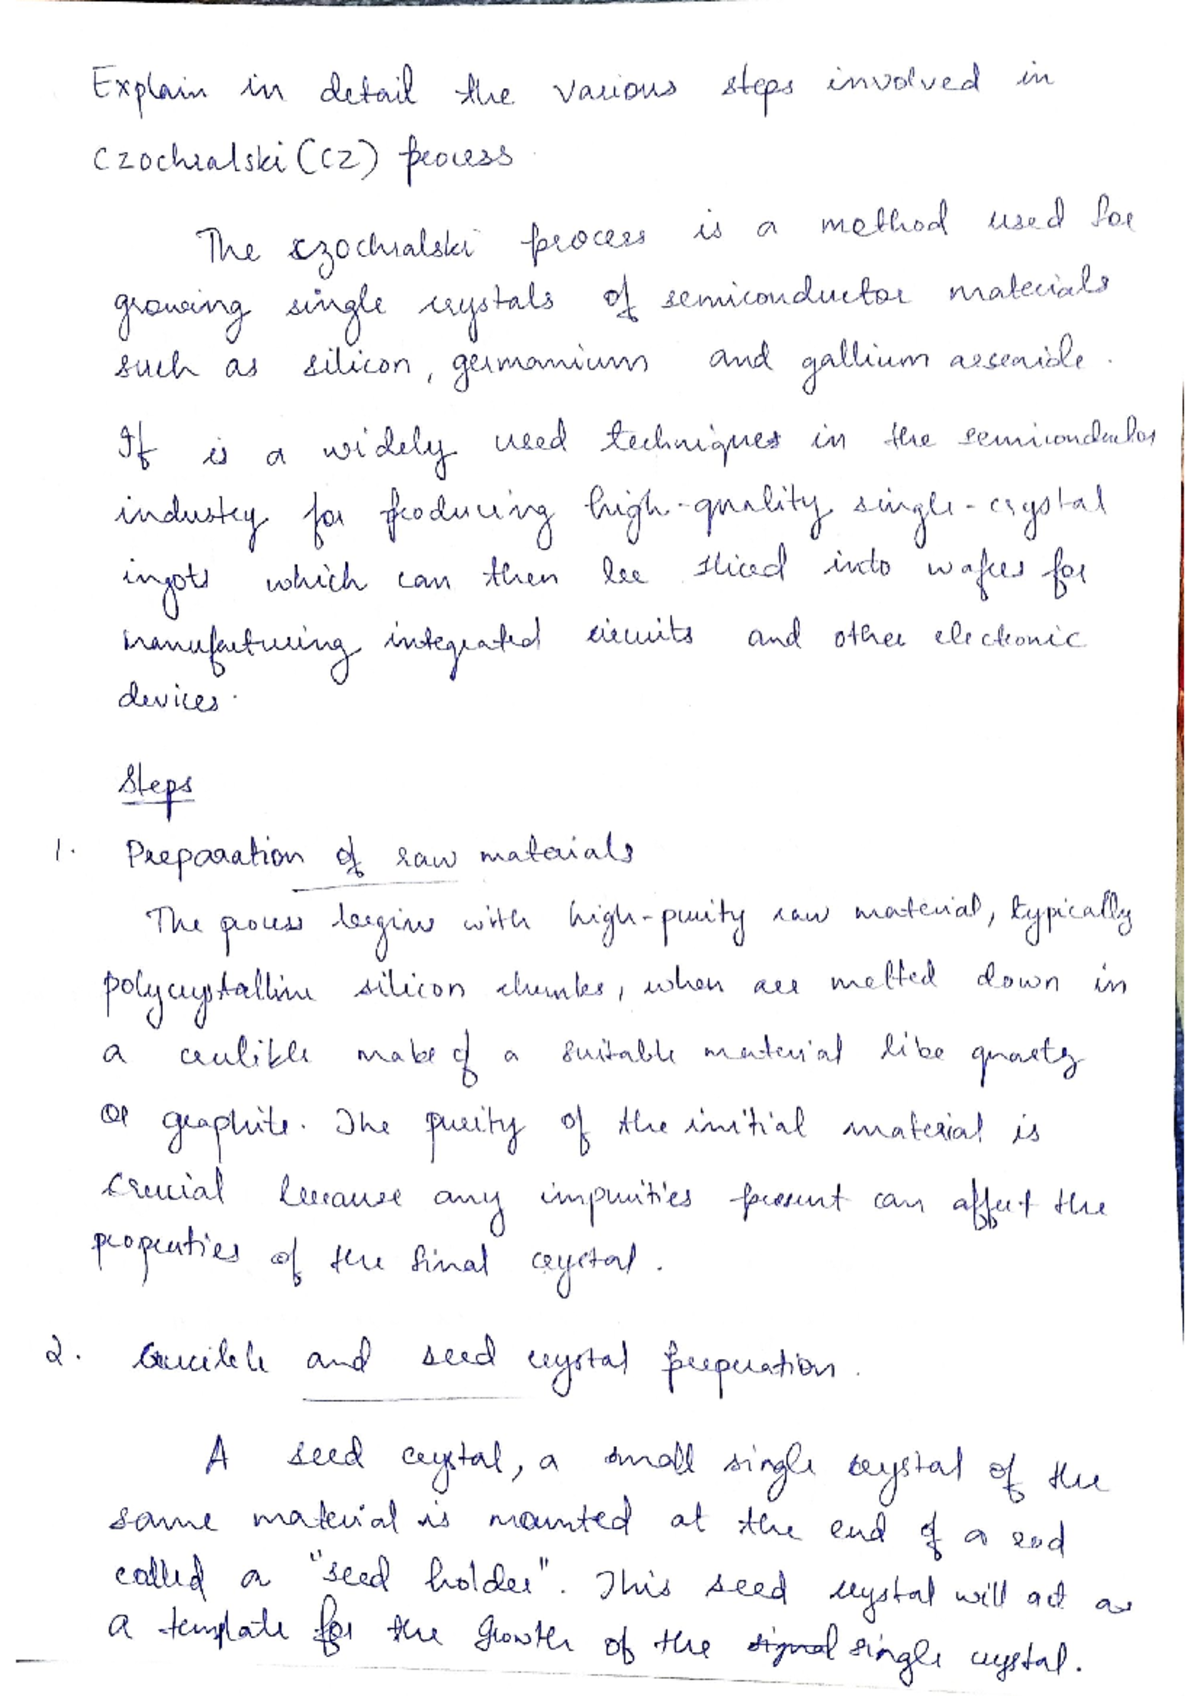 Explain in detail the various steps involved in
Czochralski (CZ) process
The czochralski process is a method used for
growing single crystals of semiconductor materials
such as silicon, germanium and gallium arsenide.
It is a widely used techniques in the semiconductor
industry for producing high-quality single-crystal
ingots which can then be sliced into wafers for
manufacturing integrated circuits and other electronic
devices.
Steps
1. Preparation of raw materials
The process begins with high-purity raw material, typically
polycrystalline silicon chunks, when are melted down in
a crucible make of a suitable material like quartz
or graphite. The purity of the initial material is
crucial because any impurities present can affect the
properties of the final crystal.
2. Crucible and seed crystal preparation.
A seed crystal, a small single crystal of the
same material is mounted at the end of a rod
called a "seed holder". This seed crystal will act as
a template for the growth of the signal single crystal.